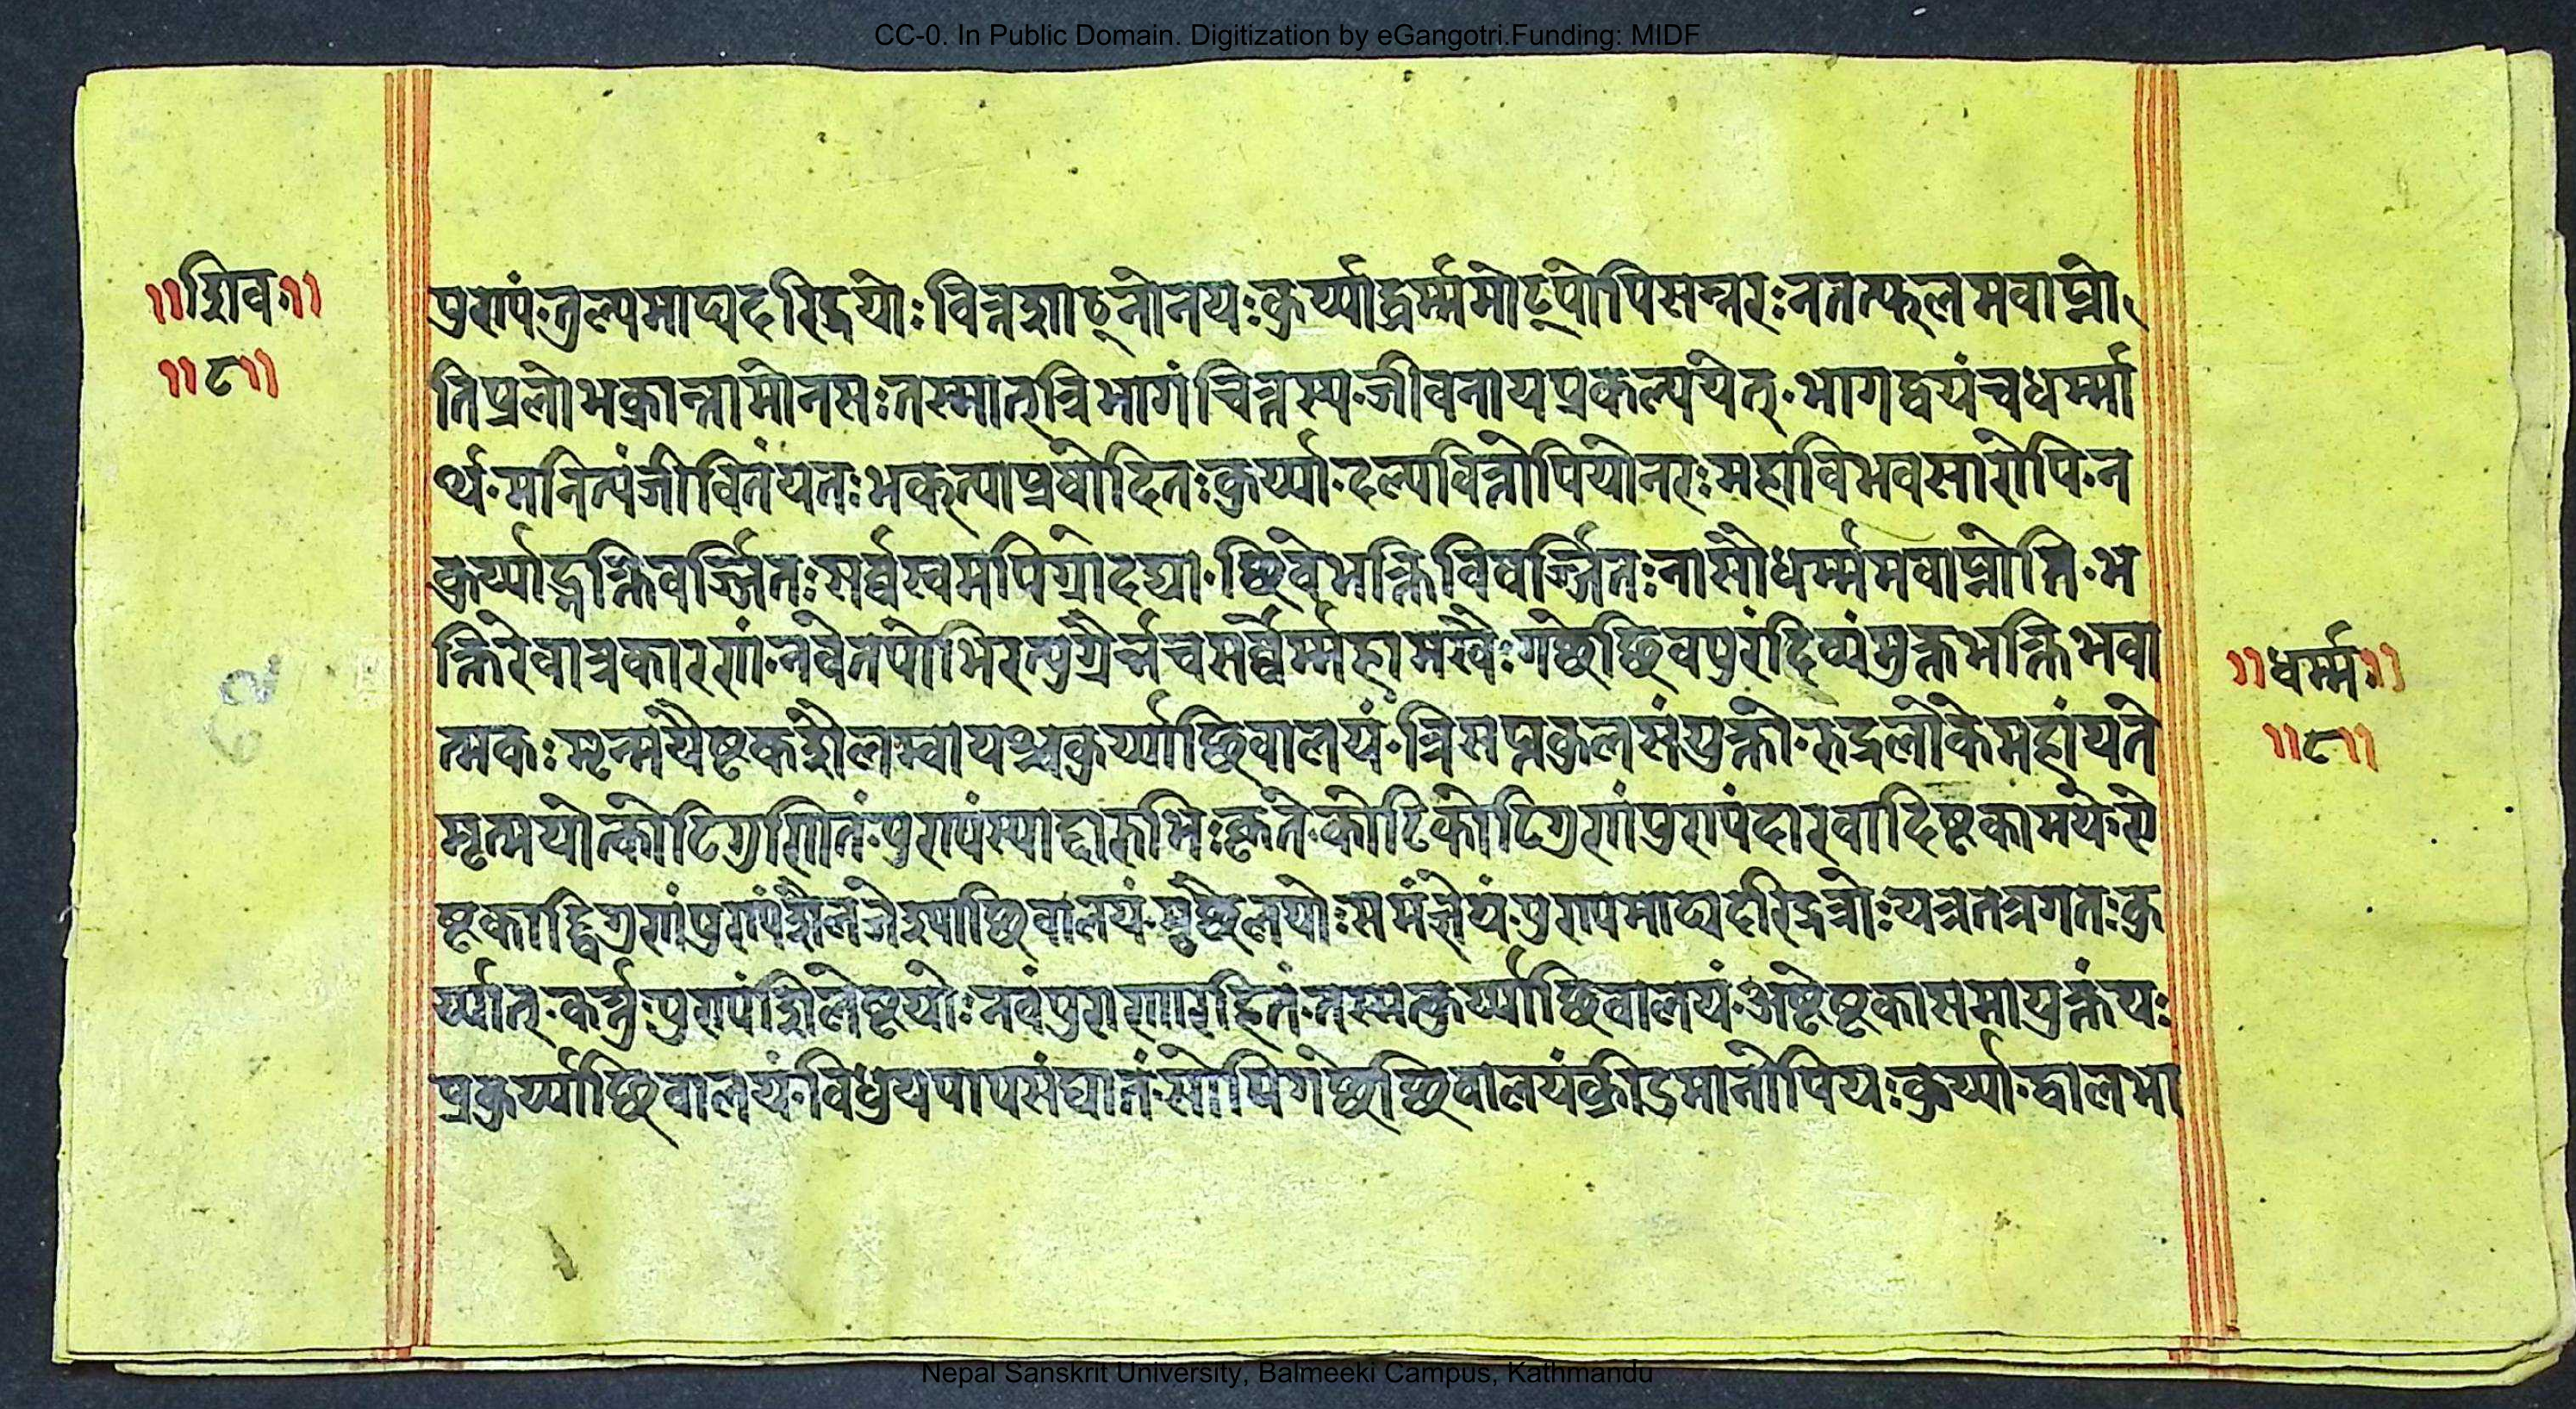 CC-0. In Public Domain. Digitization by eGangotri.Funding: MIDF
॥शिव॥
॥८॥
पुण्यं॰तुल्यमाढ्यदरिद्रयोः वित्तशाठ्नोनयःकुर्य्याद्धर्म्ममोट्पोपिसन्नरःनतत्फलमवाप्नो
तिप्रलोभक्रान्तामोनसःतस्मात्त्रिभागंचित्तस्य॰जीवनायप्रकल्पयेत्॰भागद्वयंचधर्म्मा
र्थ॰मनित्यंजीवितंयतःभक्त्याप्रषोदितःकुर्य्या॰दल्पवित्तोपियोनरःमहाविभवसारोपि॰न
कुर्य्याद्भक्तिवर्ज्जितःसर्व्वस्वमपिग्रोदद्या॰च्छिवेभक्तिविवर्ज्जितःनासौधर्म्ममवाप्नोति॰भ
क्तिरेवात्रकारणं॰नवेतपोभिरत्युग्रैर्न्नचसर्व्वैर्म्महामखैःगच्छेच्छिवपुरंदिव्यंमुक्तभक्तिभवा
त्मकःमृन्मयैष्टकशैलम्वायश्चकुर्य्याच्छिवालयं॰त्रिसप्तकुलसंयुक्तो॰रुद्रलोकेमहांयते
मृत्मयोत्कोटिगुणितं॰पुण्यंस्याद्दारुभिःकृते॰कोटिकोटिगुणंपुण्यंदारवादिष्टकामये॰स
ष्टकाद्द्विगुणंपुण्यंशैलजेश्याच्छिवालयं॰मृच्छैलयोःसमंज्ञेयं॰पुण्यमाढ्यदरिद्रत्रोःयत्रतत्रगतःकु
र्य्यात्॰कर्त्तुःपुण्यंशिलेष्टयोःनवंपुराणारहितं॰तस्मत्कुर्य्याच्छिवालयं॰अष्टेष्टकासमायुक्तंयः
प्रकुर्य्याच्छिवालयं॰विधुयपापसंघातं॰सोपिगच्छेच्छिवालयंक्रीडमानोपियःकुर्य्या॰द्वालभा
॥धर्म्म॥
॥८॥
Nepal Sanskrit University, Balmeeki Campus, Kathmandu